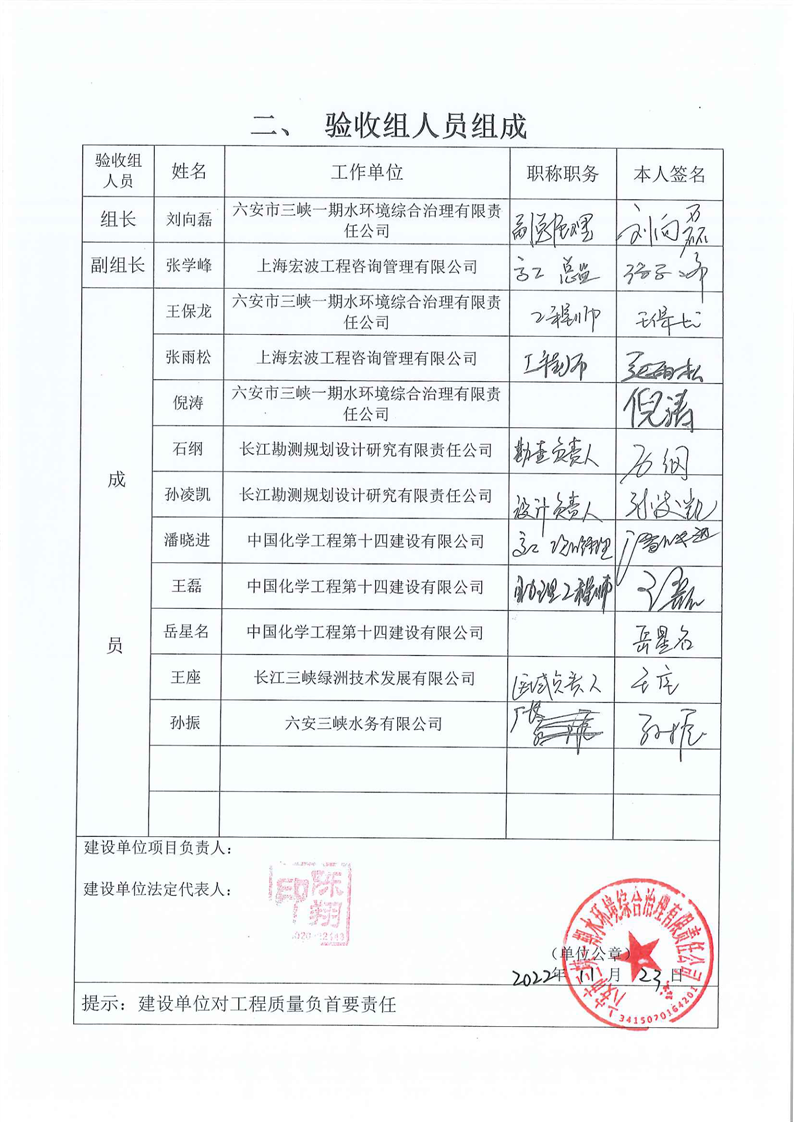 二、 验收组人员组成
验收组
人员
姓名
工作单位
职称职务
本人签名
组长
刘向磊
六安市三峡一期水环境综合治理有限责
任公司
副总经理
刘向磊
副组长
张学峰
上海宏波工程咨询管理有限公司
高工 总监
成
员
王保龙
六安市三峡一期水环境综合治理有限责
任公司
工程师
王保龙
张雨松
上海宏波工程咨询管理有限公司
工程师
张雨松
倪涛
六安市三峡一期水环境综合治理有限责
任公司
倪涛
石纲
长江勘测规划设计研究有限责任公司
勘查负责人
石纲
孙凌凯
长江勘测规划设计研究有限责任公司
设计负责人
孙凌凯
潘晓进
中国化学工程第十四建设有限公司
高工 项目经理
潘晓进
王磊
中国化学工程第十四建设有限公司
助理工程师
王磊
岳星名
中国化学工程第十四建设有限公司
岳星名
王座
长江三峡绿洲技术发展有限公司
区域负责人
王座
孙振
六安三峡水务有限公司
厂长
孙振
建设单位项目负责人：
建设单位法定代表人：
陈翔
印
六安市三峡一期水环境综合治理有限责任公司
3415070164201
（单位公章）
2022年 11月 23日
提示：建设单位对工程质量负首要责任